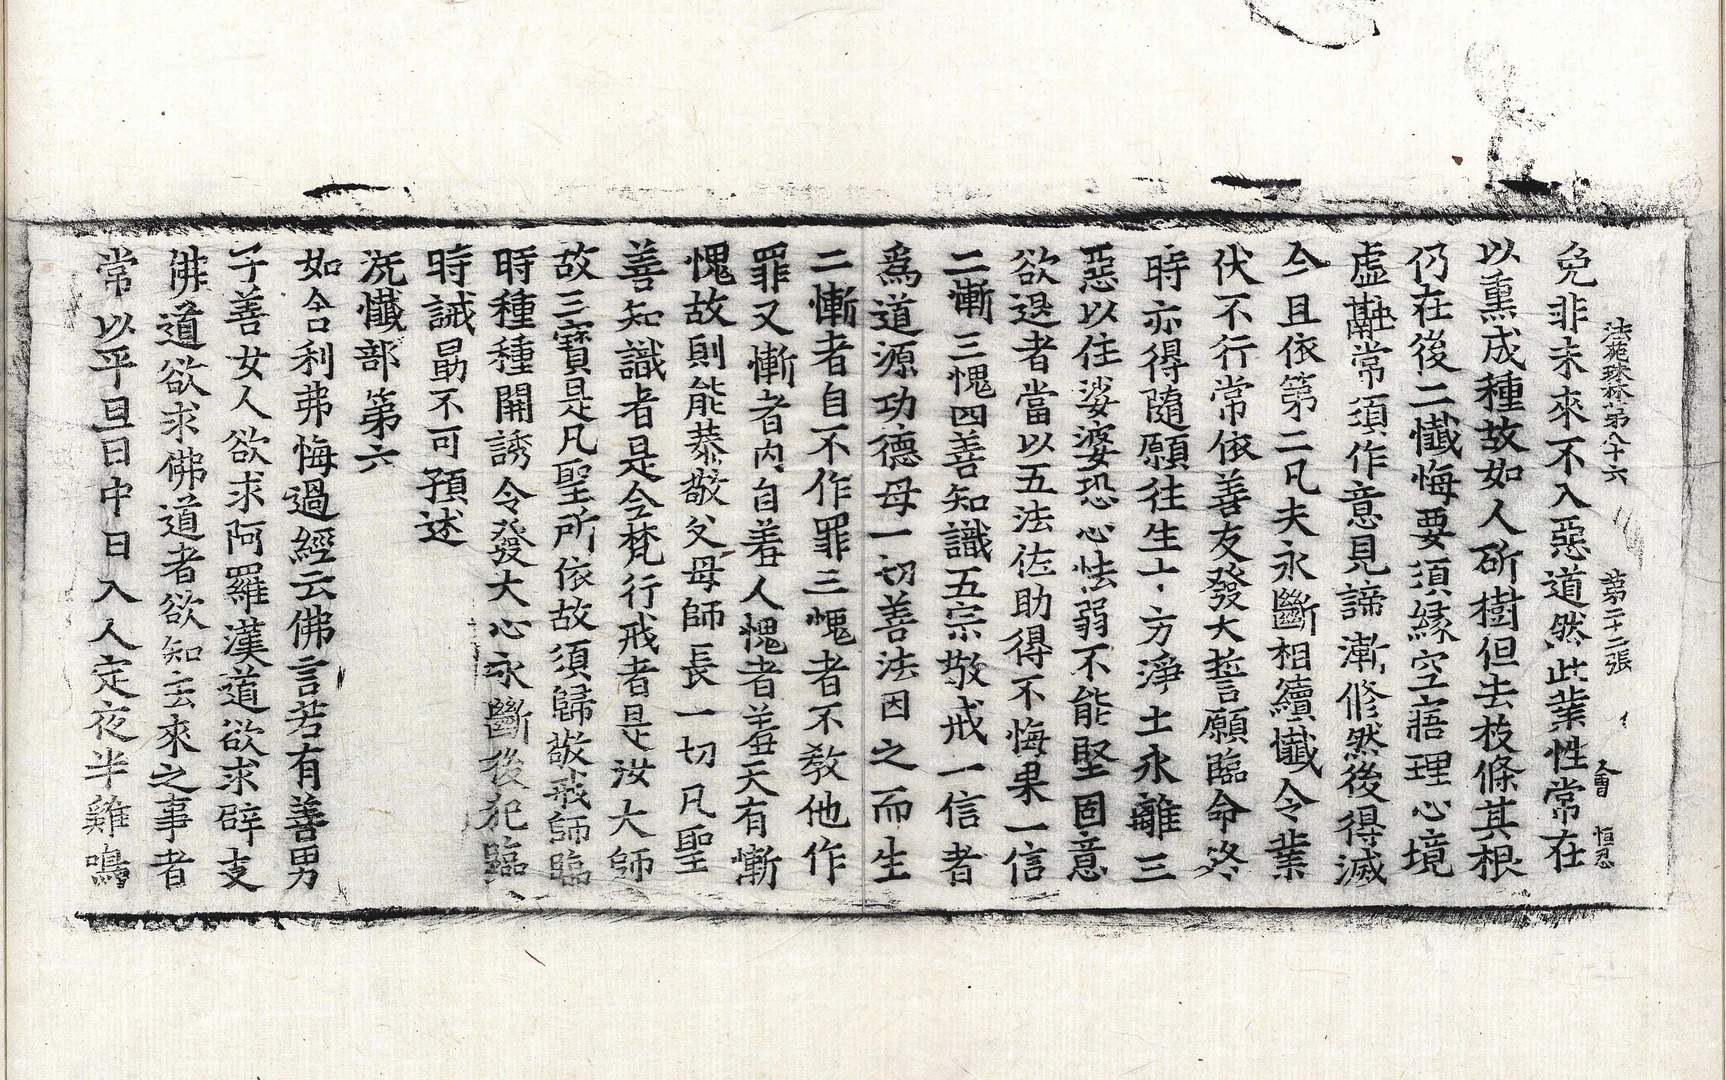 法苑珠林第八十六 第二十二張 會 恒忍
免非未來不入惡道然此業性常在
以熏成種故如人斫樹但去枝條其根
仍在後二懺悔要須緣空寤理心境
虛融常須作意見諦漸修然後得滅
今且依第二凡夫永斷相續懺令業
伏不行常依善友發大誓願臨命終
時亦得隨願往生十方淨土永離三
惡以住娑婆恐心怯弱不能堅固意
欲退者當以五法佐助得不悔果一信
二慚三愧四善知識五宗敬戒一信者
爲道源功德母一切善法因之而生
二慚者自不作罪三愧者不教他作
罪又慚者內自羞人愧者羞天有慚
愧故則能恭敬父母師長一切凡聖
善知識者是令梵行戒者是汝大師
故三寶是凡聖所依故須歸敬戒師臨
時種種開誘令發大心永斷後犯臨
時誡勗不可預述
洗懺部第六
如舍利弗悔過經云佛言若有善男
子善女人欲求阿羅漢道欲求辟支
佛道欲求佛道者欲知去來之事者
常以平旦日中日入人定夜半雞鳴